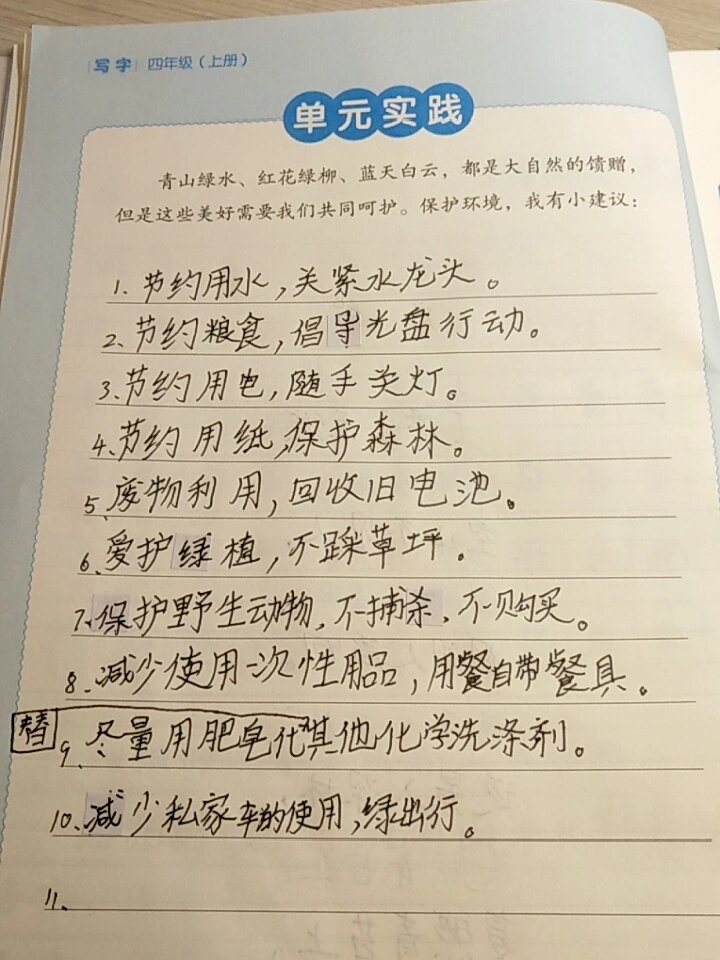 写字 四年级（上册）
单元实践
青山绿水、红花绿柳、蓝天白云，都是大自然的馈赠，
但是这些美好需要我们共同呵护。保护环境，我有小建议：
1.节约用水，关紧水龙头。
2、节约粮食，倡导光盘行动。
3、节约用电，随手关灯。
4、节约用纸，保护森林。
5、废物利用，回收旧电池。
6、爱护绿植，不踩草坪。
7、保护野生动物，不捕杀，不购买。
8、减少使用一次性用品，用餐自带餐具。
替
9、尽量用肥皂代其他化学洗涤剂。
10、减少私家车的使用，绿出行。
11、